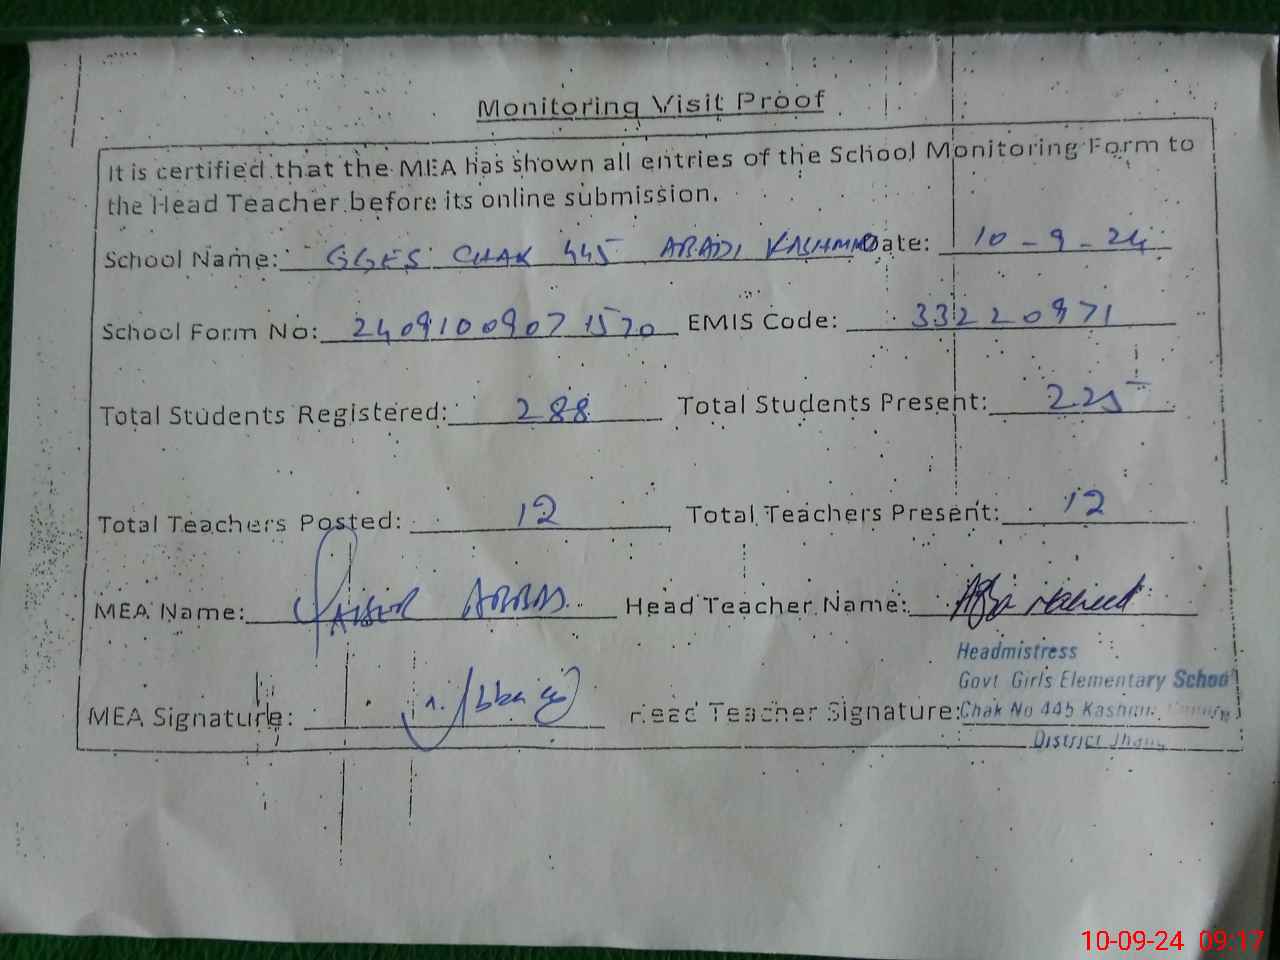 Monitoring Visit Proof
It is certified that the MEA has shown all entries of the School Monitoring Form to
the Head Teacher before its online submission.
School Name: GGES CHAK 445 ABADI KASHMIR Date: 10-9-24
School Form No: 24091009071520 EMIS Code: 33220971
Total Students Registered: 288 Total Students Present: 225
Total Teachers Posted: 12 Total Teachers Present: 12
MEA Name: ABBAS Head Teacher Name: Naheed
Headmistress
Govt Girls Elementary School
MEA Signature: Head Teacher Signature: Chak No 445
District Jhang
10-09-24 09:17